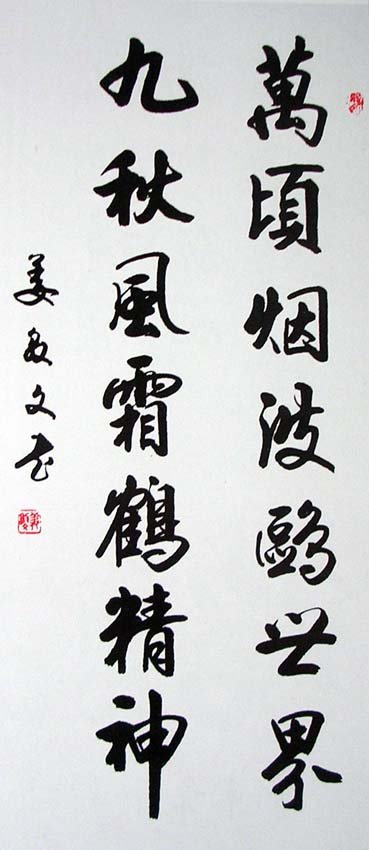 萬頃烟波鷗世界
九秋風霜鶴精神
姜
文